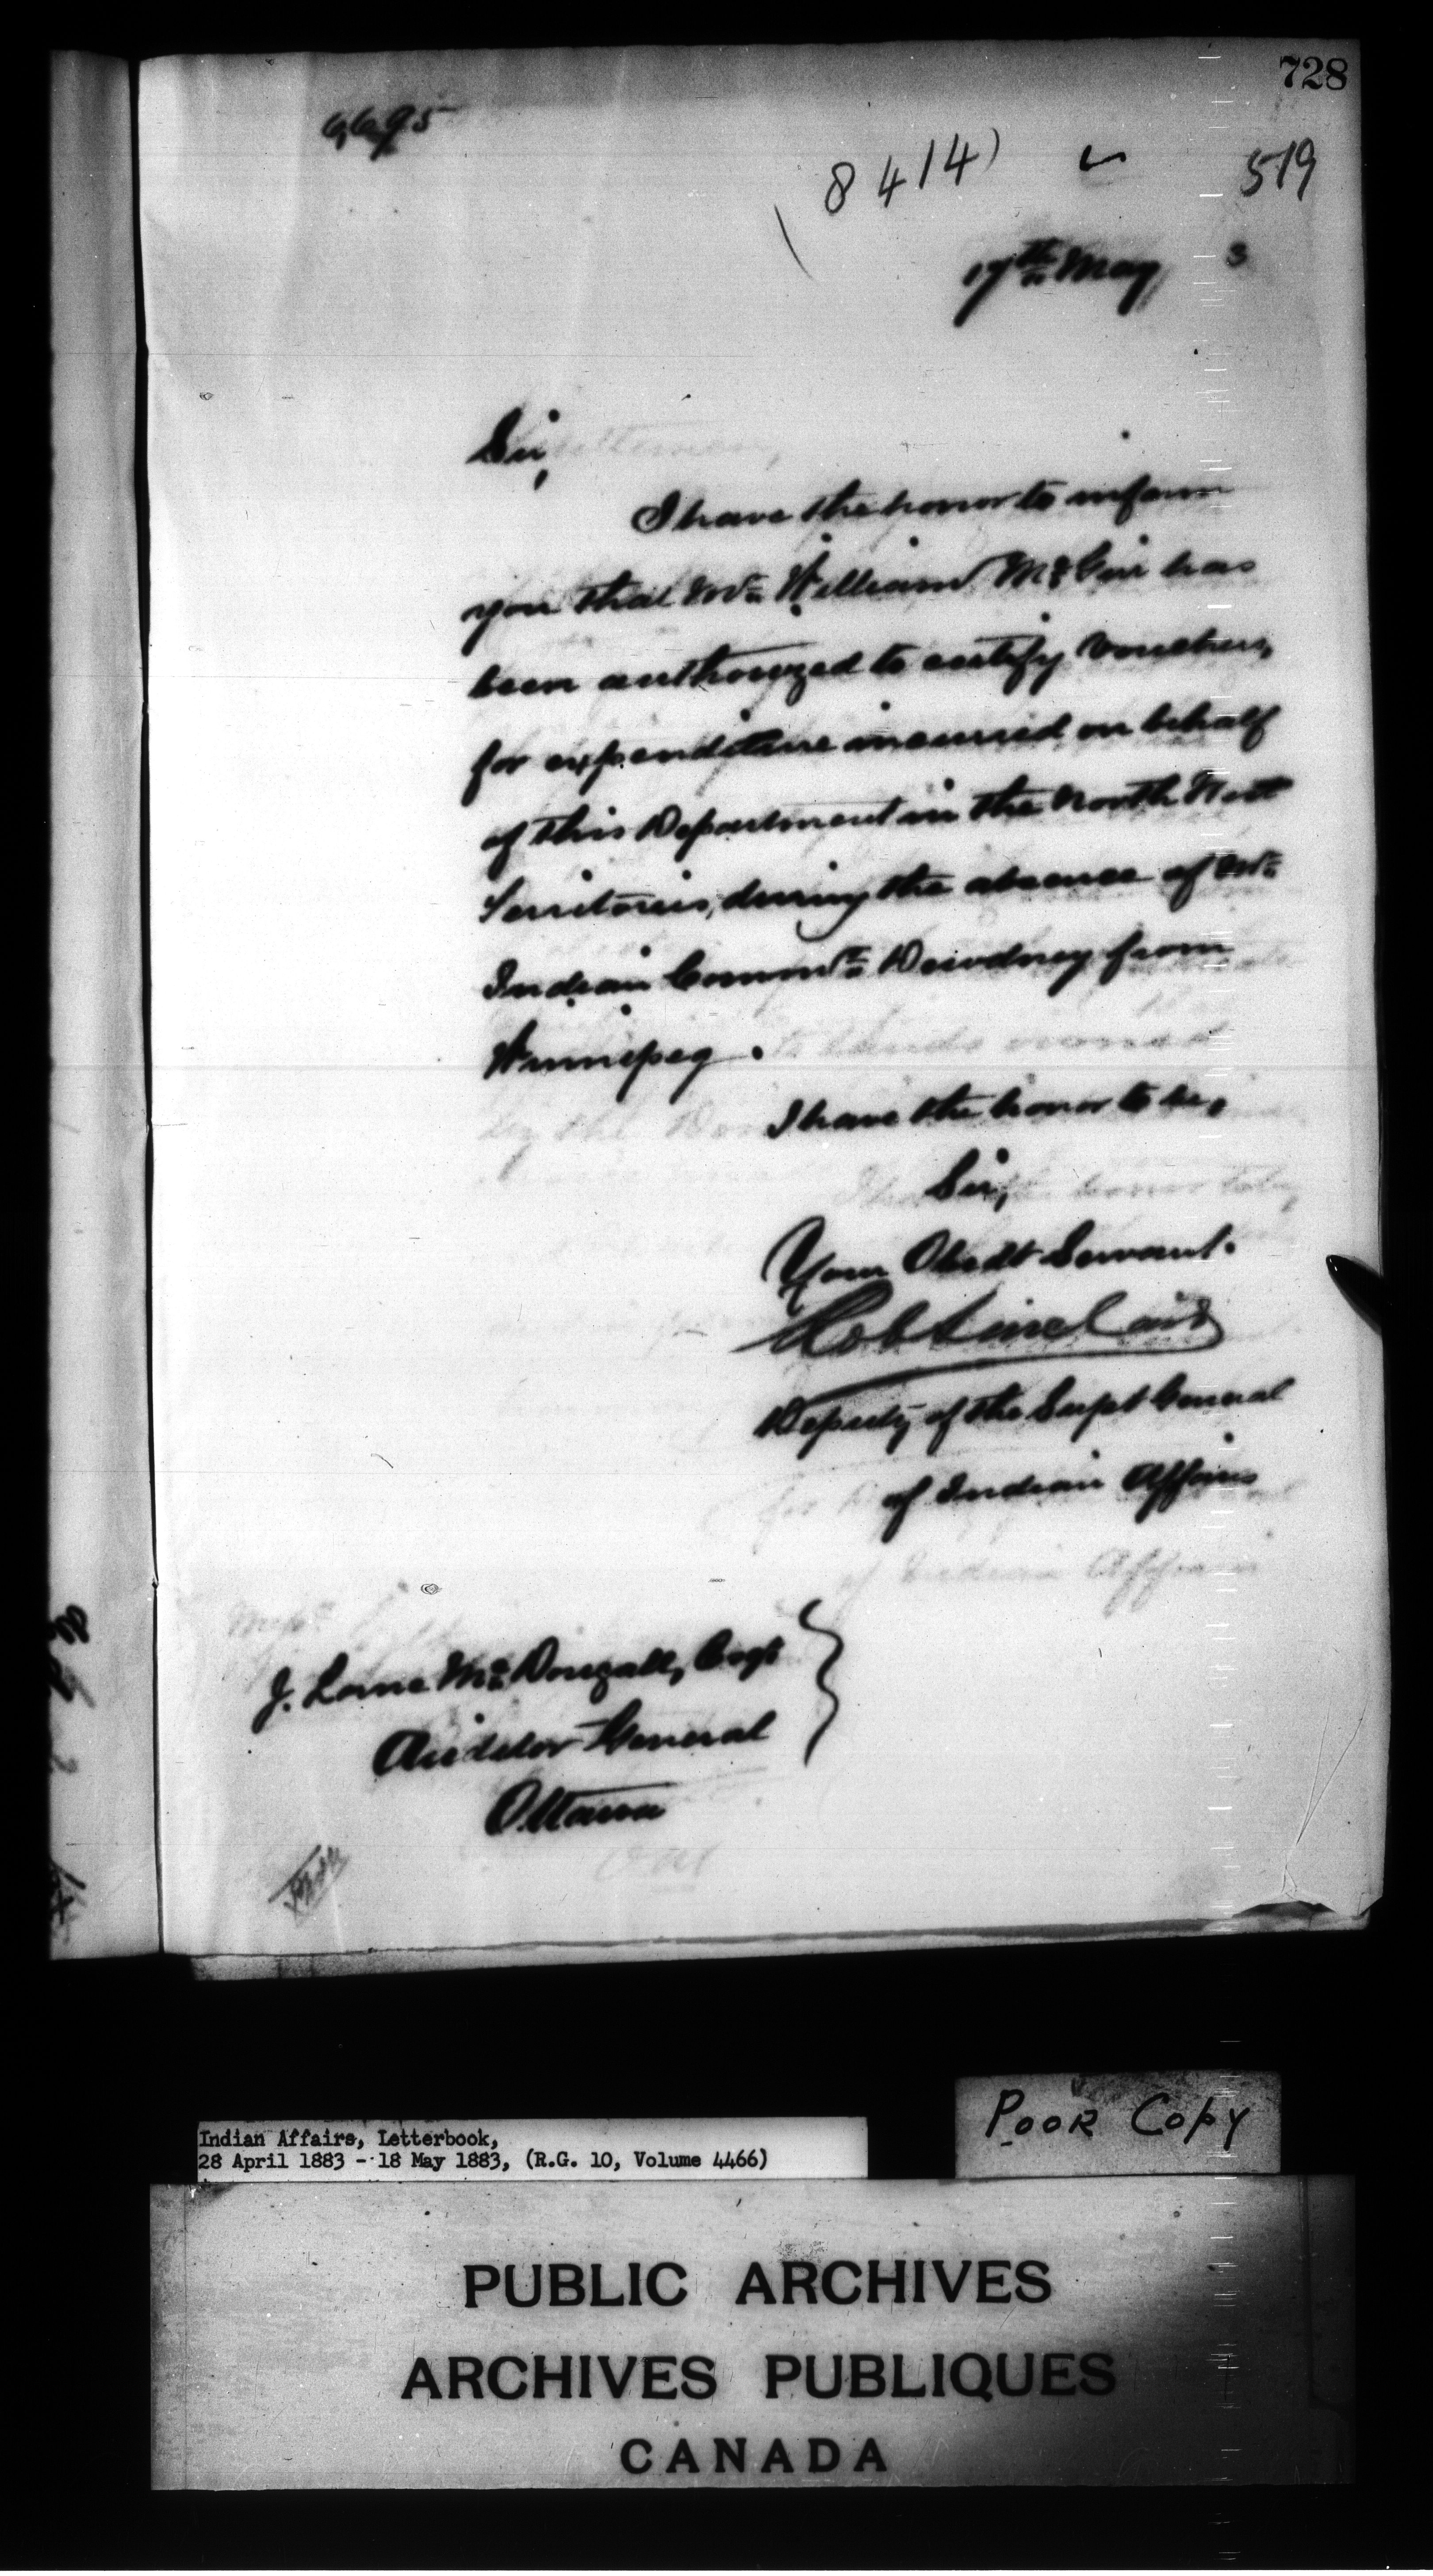 728
6,695
(8414)
519
17th May 3
Sir,
I have the honor to inform
you that Mr. William McGirr has
been authorized to certify vouchers,
for expenditure incurred on behalf
of this Department in the North West
Territories, during the absence of Mr.
Indian Commr. Dewdney from
Winnipeg.
I have the honor to be,
Sir,
Your Obedt Servant.
Rob Sinclair
Deputy of the Supt General
of Indian Affairs
J. Lorne McDougall, Esqr
Auditor General
Ottawa
Poor Copy
Indian Affairs, Letterbook,
28 April 1883 - 18 May 1883, (R.G. 10, Volume 4466)
PUBLIC ARCHIVES
ARCHIVES PUBLIQUES
CANADA